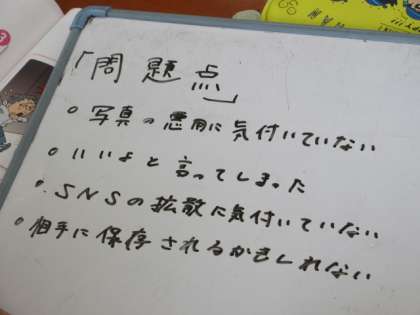 「問題点」
○ 写真の悪用に気付いていない
○ いいよと言ってしまった
○ SNSの拡散に気付いていない
○ 相手に保存されるかもしれない